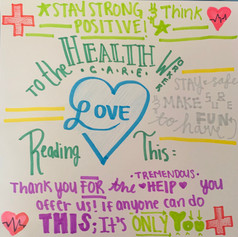 STAY STRONG
& Think
POSITIVE!
to the HEALTH CARE WORKER
Stay safe
& MAKE SURE
to have FUN
LOVE
Reading This:
Thank you FOR the TREMENDOUS HELP you
offer us! If anyone can do
THIS; It's ONLY You